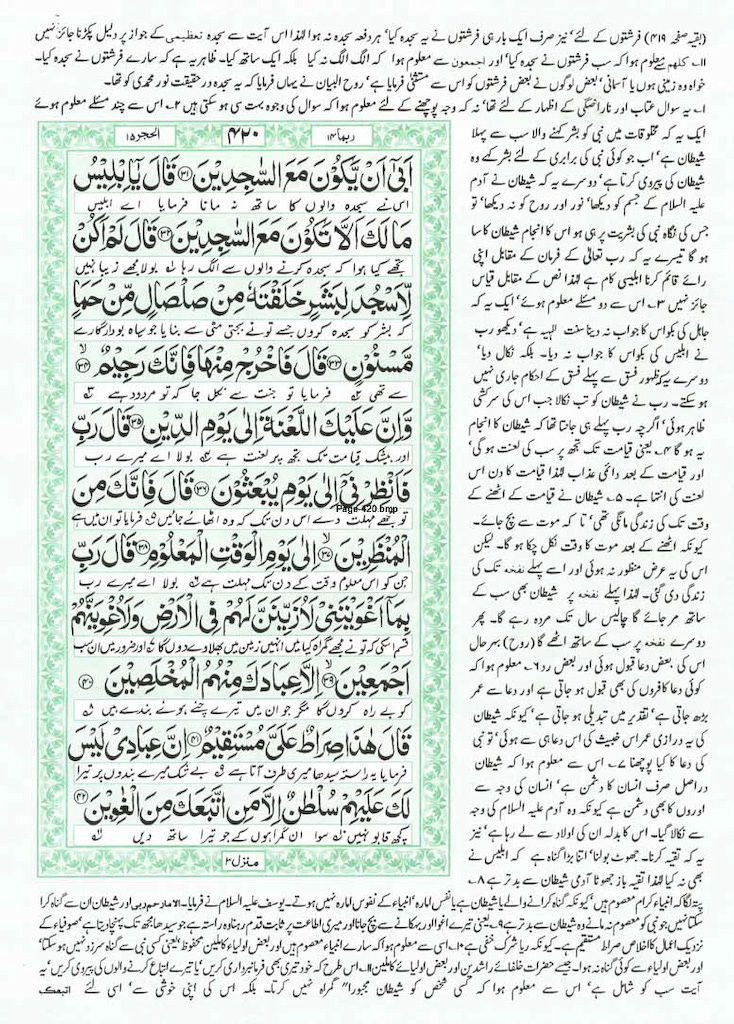 (بقیہ صفحہ ۴۱۹) فرشتوں کے لئے، نیز صرف ایک بار ہی فرشتوں نے یہ سجدہ کیا، ہر دفعہ سجدہ نہ ہوا لہٰذا اس آیت سے سجدہ تعظیمی کے جواز پر دلیل پکڑنا جائز نہیں
۱۱۔ کلھم سے معلوم ہوا کہ سب فرشتوں نے سجدہ کیا، اور اجمعون سے معلوم ہوا کہ الگ الگ نہ کیا بلکہ ایک ساتھ کیا۔ ظاہر یہ ہے کہ سارے فرشتوں نے سجدہ کیا۔
خواہ وہ زمینی ہوں یا آسمانی، بعض لوگوں نے بعض فرشتوں کو اس سے مستثنیٰ فرمایا ہے، روح البیان نے یہاں فرمایا کہ یہ سجدہ در حقیقت نور محمدی کو تھا۔
۱۔ یہ سوال عتاب اور ناراضگی کے اظہار کے لئے تھا، نہ کہ وجہ پوچھنے کے لئے معلوم ہوا کہ سوال کی وجوہ بہت سی ہو سکتی ہیں ۲۔ اس سے چند مسئلے معلوم ہوئے
ایک یہ کہ مخلوقات میں نبی کو بشر کہنے والا سب سے پہلا
شیطان ہے، اب جو کوئی نبی کی برابری کے لئے بشر کہے وہ
شیطان کی پیروی کرتا ہے، دوسرے یہ کہ شیطان نے آدم
علیہ السلام کے جسم کو دیکھا، نور اور روح کو نہ دیکھا، تو
جس کی نگاہ نبی کی بشریت پر ہی ہو اس کا انجام شیطان کا سا
ہو گا تیسرے یہ کہ رب تعالیٰ کے فرمان کے مقابل اپنی
رائے قائم کرنا ابلیسی کام ہے لہٰذا نص کے مقابل قیاس
جائز نہیں ۳۔ اس سے دو مسئلے معلوم ہوئے، ایک یہ کہ
جاہل کی بکواس کا جواب نہ دینا سنت الٰہیہ ہے، دیکھو رب
نے ابلیس کی بکواس کا جواب نہ دیا۔ بلکہ نکال دیا،
دوسرے یہ کہ ظہور فسق سے پہلے فسق کے احکام جاری نہیں
ہو سکتے۔ رب نے شیطان کو تب نکالا جب اس کی سرکشی
ظاہر ہوئی، اگرچہ رب پہلے ہی جانتا تھا کہ شیطان کا انجام
یہ ہو گا ۴۔ یعنی قیامت تک تجھ پر سب کی لعنت ہو گی،
اور قیامت کے بعد دائمی عذاب لہٰذا قیامت کا دن اس
لعنت کی انتہا ہے۔ ۵۔ شیطان نے قیامت کے اٹھنے کے
وقت تک کی زندگی مانگی تھی، تا کہ موت سے بچ جائے۔
کیونکہ اٹھنے کے بعد موت کا وقت نکل چکا ہو گا۔ لیکن
اس کی یہ عرض منظور نہ ہوئی اور اسے پہلے نفخہ تک کی
زندگی دی گئی۔ لہٰذا پہلے نفخہ پر شیطان بھی سب کے
ساتھ مر جائے گا چالیس سال تک مردہ رہے گا۔ پھر
دوسرے نفخہ پر سب کے ساتھ اٹھے گا (روح) بہرحال
اس کی بعض دعا قبول ہوئی اور بعض رد ۶۔ معلوم ہوا کہ
کوئی دعا کافروں کی بھی قبول ہو جاتی ہے اور دعا سے عمر
بڑھ جاتی ہے، تقدیر میں تبدیلی ہو جاتی ہے، کیونکہ شیطان
کی یہ درازی عمر اس خبیث کی اس دعا ہی سے ہوئی، تو نبی
کی دعا کا کیا پوچھنا ۷۔ اس سے معلوم ہوا کہ شیطان
دراصل صرف انسان کا دشمن ہے، انسان کی وجہ سے
اوروں کا بھی دشمن ہے کیونکہ وہ آدم علیہ السلام کی وجہ
سے نکالا گیا۔ اس کا بدلہ ان کی اولاد سے لے رہا ہے، نیز
یہ کہ تقیہ کرنا۔ جھوٹ بولنا، اتنا بڑا گناہ ہے کہ ابلیس نے
بھی نہ کیا لہٰذا تقیہ باز جھوٹا آدمی شیطان سے بدتر ہے ۸۔
ربما ۱۴
۴۲۰
الحجر ۱۵
اَبٰٓى اَنْ يَّكُوْنَ مَعَ السّٰجِدِيْنَ ۳۱ قَالَ يٰٓاِبْلِيْسُ
اس نے سجدہ والوں کا ساتھ نہ مانا فرمایا اے ابلیس
مَا لَكَ اَلَّا تَكُوْنَ مَعَ السّٰجِدِيْنَ ۳۲ قَالَ لَمْ اَكُنْ
تجھے کیا ہوا کہ سجدہ کرنے والوں سے الگ رہا بولا مجھے زیبا نہیں
لِّاَسْجُدَ لِبَشَرٍ خَلَقْتَهٗ مِنْ صَلْصَالٍ مِّنْ حَمَاٍ
کہ بشر کو سجدہ کروں جسے تو نے بجتی مٹی سے بنایا جو سیاہ بودار گارے
مَّسْنُوْنٍ ۳۳ قَالَ فَاخْرُجْ مِنْهَا فَاِنَّكَ رَجِيْمٌ ۳۴
سے تھی فرمایا تو جنت سے نکل جا کہ تو مردود ہے
وَّاِنَّ عَلَيْكَ اللَّعْنَةَ اِلٰى يَوْمِ الدِّيْنِ ۳۵ قَالَ رَبِّ
اور بیشک قیامت تک تجھ پر لعنت ہے بولا اے میرے رب
فَاَنْظِرْنِيْٓ اِلٰى يَوْمِ يُبْعَثُوْنَ ۳۶ قَالَ فَاِنَّكَ مِنَ
Page-420.bmp
تو مجھے مہلت دے اس دن تک کہ وہ اٹھائے جائیں فرمایا تو ان میں ہے
الْمُنْظَرِيْنَ ۳۷ اِلٰى يَوْمِ الْوَقْتِ الْمَعْلُوْمِ ۳۸ قَالَ رَبِّ
جن کو اس معلوم وقت کے دن تک مہلت ہے بولا اے میرے رب
بِمَآ اَغْوَيْتَنِيْ لَاُزَيِّنَنَّ لَهُمْ فِى الْاَرْضِ وَلَاُغْوِيَنَّهُمْ
قسم اس کی کہ تو نے مجھے گمراہ کیا میں انہیں زمین میں بھلاوے دوں گا اور ضرور میں ان سب
اَجْمَعِيْنَ ۳۹ اِلَّا عِبَادَكَ مِنْهُمُ الْمُخْلَصِيْنَ ۴۰
کو بے راہ کروں گا مگر جو ان میں تیرے چنے ہوئے بندے ہیں
قَالَ هٰذَا صِرَاطٌ عَلَيَّ مُسْتَقِيْمٌ ۴۱ اِنَّ عِبَادِيْ لَيْسَ
فرمایا یہ راستہ سیدھا میری طرف آتا ہے بے شک میرے بندوں پر تیرا
لَكَ عَلَيْهِمْ سُلْطٰنٌ اِلَّا مَنِ اتَّبَعَكَ مِنَ الْغٰوِيْنَ ۴۲
کچھ قابو نہیں سوا ان گمراہوں کے جو تیرا ساتھ دیں
منزل ۳
پتہ لگا کہ انبیاء کرام معصوم ہیں، کیونکہ گناہ کرانے والے یا شیطان ہے یا نفس امارہ، انبیاء کے نفوس امارہ نہیں ہوتے۔ یوسف علیہ السلام نے فرمایا۔ الا مارحم ربی اور شیطان ان سے گناہ کرا
سکتا نہیں جو نبی کو معصوم نہ مانے وہ شیطان سے بدتر ہے ۹۔ یعنی تیرے اغوا اور بہکانے سے بچ جانا اور میری اطاعت پر ثابت قدم رہنا وہ راستہ ہے جو سیدھا مجھ تک پہنچا دیتا ہے، صوفیاء کے
نزدیک اعمال کا اخلاص صراط مستقیم ہے۔ کیونکہ ریا شرک خفی ہے ۱۰۔ اس سے معلوم ہوا کہ سارے انبیاء معصوم ہیں اور بعض اولیاء کاملین محفوظ، یعنی کسی نبی سے گناہ سرزد نہیں ہو سکتا،
اور بعض اولیاء سے کوئی گناہ نہ ہوا۔ جیسے حضرات خلفائے راشدین اور بعض اولیائے کاملین ۱۱۔ اس طرح کہ خود تیری بھی فرمانبرداری کریں، یا تیرے اتباع کرنے والوں کی پیروی کریں، یہ
آیت سب کو شامل ہے، اس سے معلوم ہوا کہ کسی شخص کو شیطان مجبوراً گمراہ نہیں کرتا۔ بلکہ اس کی اپنی خوشی سے، اسی لئے اتبعک